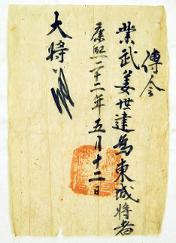 傳令
業武姜世建爲東城將者
康熙二十二年五月十二日
大將